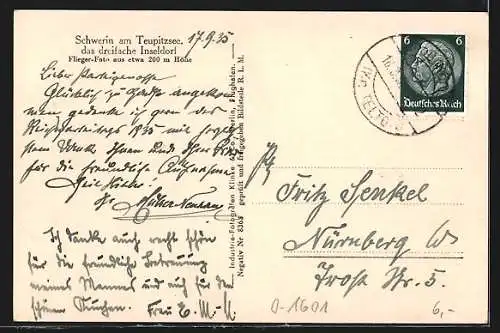 Schwerin am Teupitzsee,
das dreifache Inseldorf
Flieger-Foto aus etwa 200 m Höhe
17.9.35
Lieber Parteigenosse
Glücklich zu Hause angekom-
men gedenke ich gern des
Reichsparteitags 1935 mit
Dank Ihnen und Ihrer Frau
für die freundliche Aufnahme
Heil Hitler!
Ihr
Ich danke auch recht schön
für die freundliche Betreuung
meines Mannes und auch für den
schönen Kuchen. Frau E. M.-N.
Industrie-Fotografen Klinke & Co., Berlin, Flughafen.
Negativ Nr 8363 geprüft und freigegeben Bildstelle R. L. M.
6 6
Deutsches Reich
TELTOW
Fritz Senkel
Nürnberg W
Trost Str. 5.
0-1601
6,-